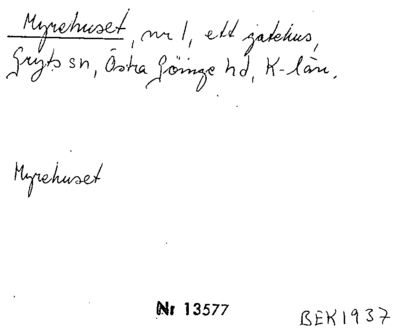 Myrehuset, nr 1, ett gatehus,
Gryts sn, Östra Göinge hd, K-län.
Myrehuset
Nr 13577
BEK 1937